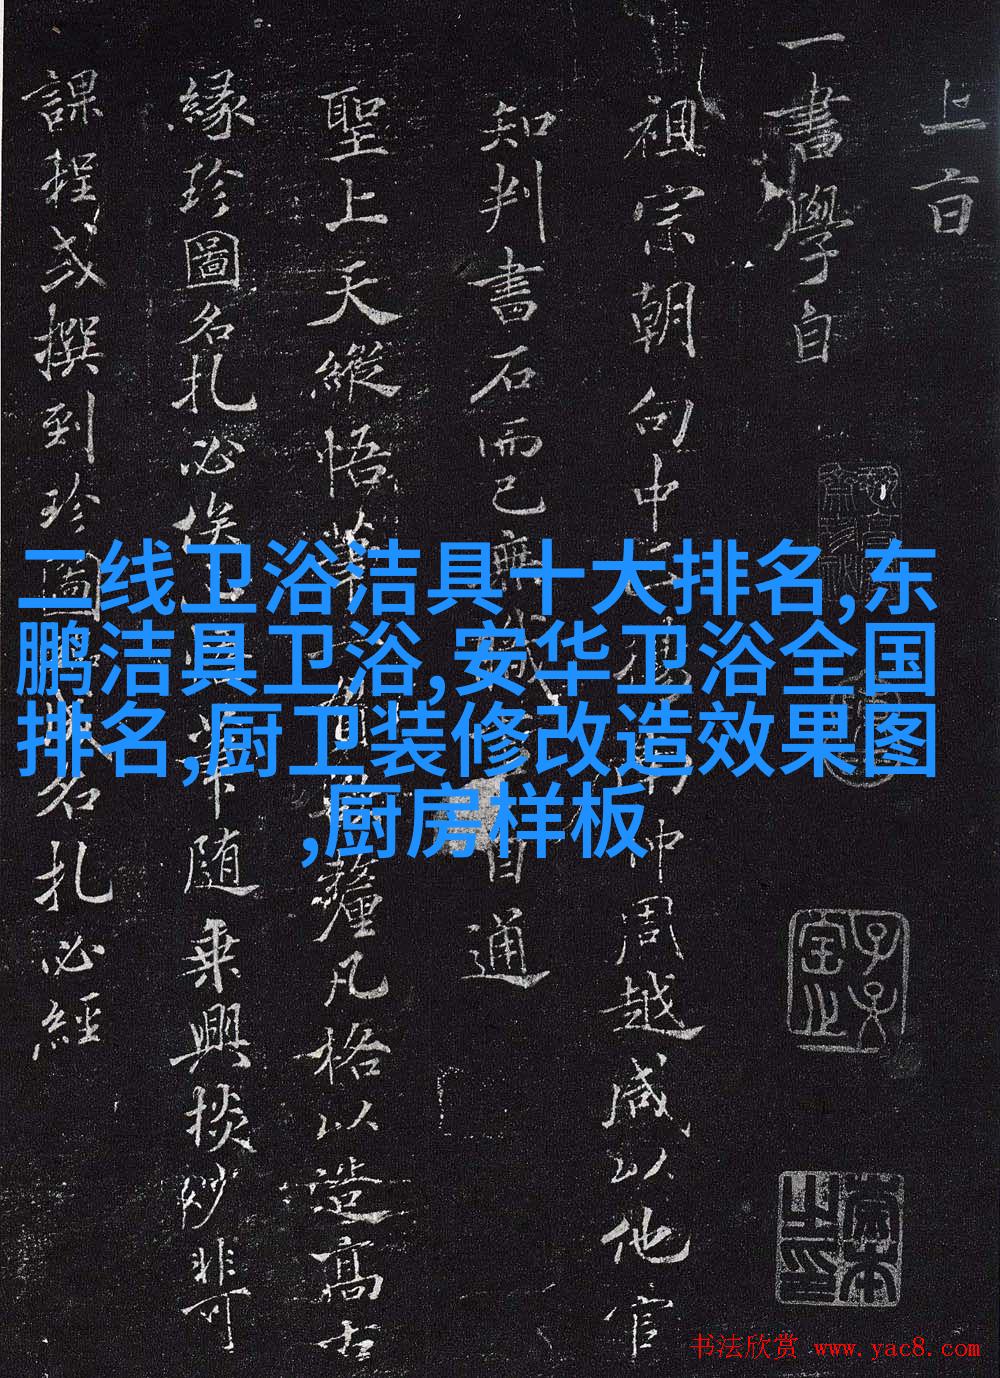 上亯
一書學自
祖宗朝向中
仲周越咸以他官
知判書石而已無
自通
聖上天縱悟筆
釐凡格以造高古
緣珍圖名扎必俟
筆随乗興掞妙非可
課程或撰到珍圖
名扎必經
二线卫浴洁具十大排名,东
鹏洁具卫浴,安华卫浴全国
排名,厨卫装修改造效果图
,厨房样板
书法欣赏 www.yac8.com